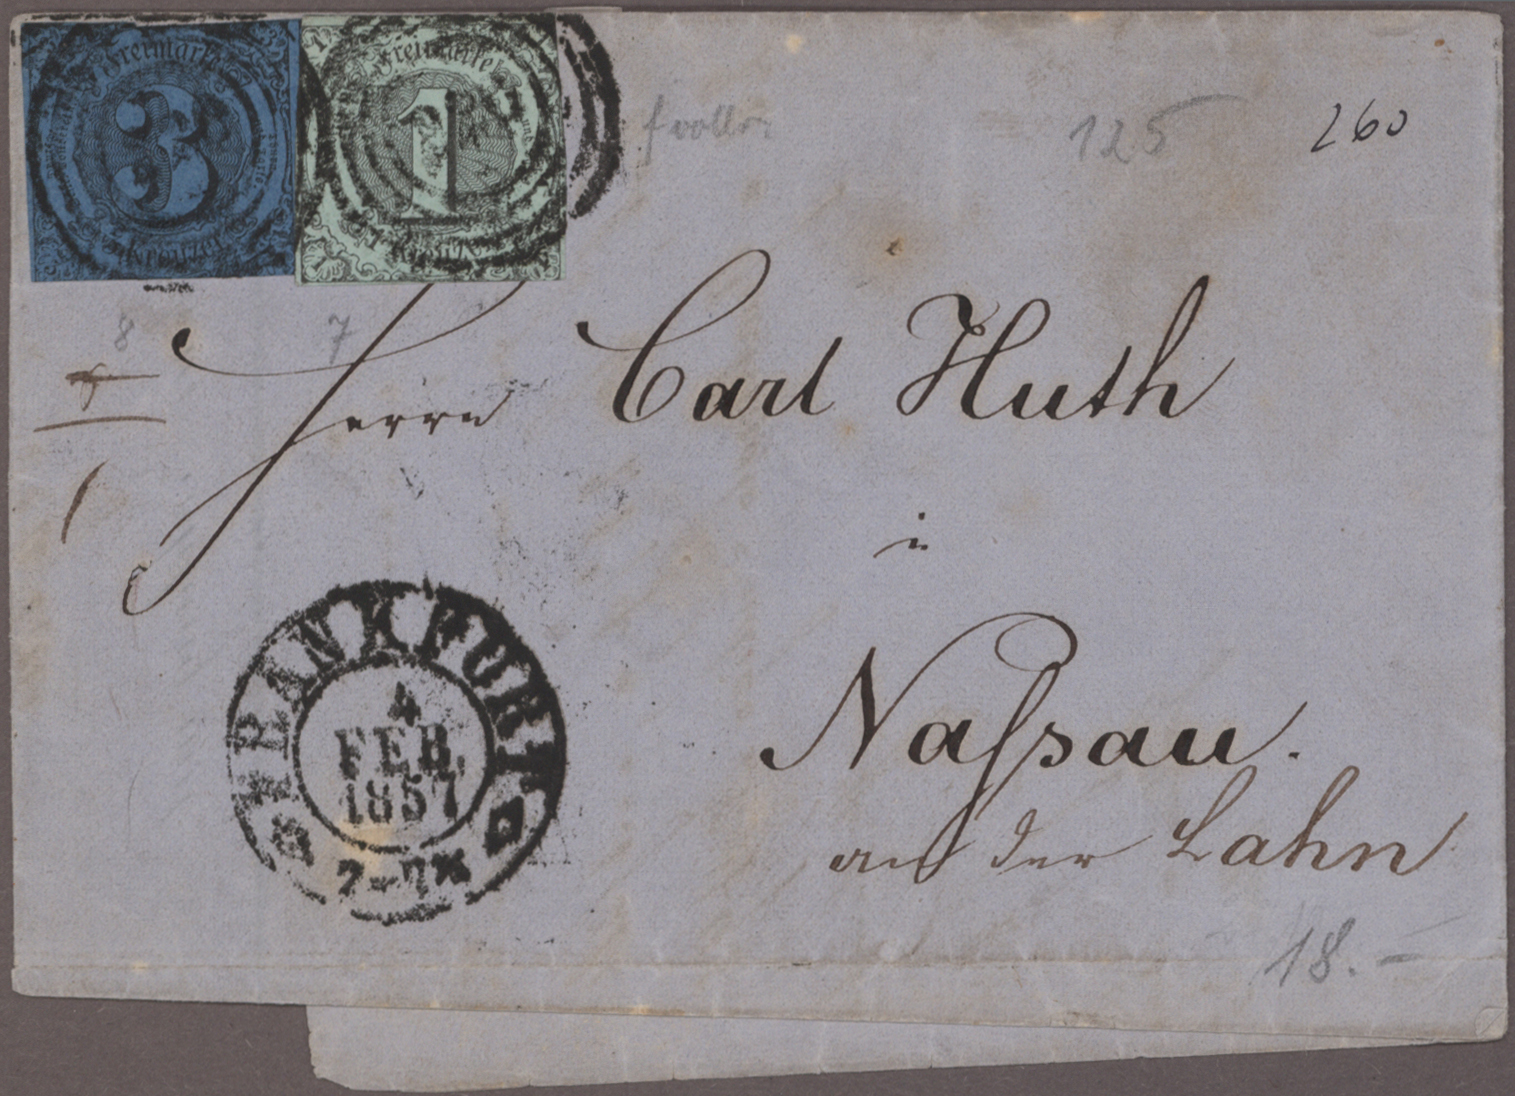 Freimarke
3
Kreuzer
Freimarke
1
Kreuzer
125
260
8
7
Herrn Carl Huth
in
Naſsau.
an der Lahn
FRANKFURT
4
FEB.
1857
18.–